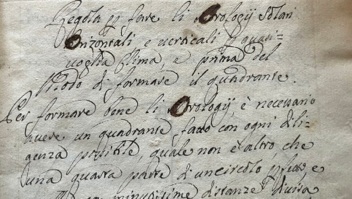 Regola p fare li Orologij Solari
Orizontali, e verticali p quan=
voglia Clima, e prima del
Modo di formare il quadrante.
Per formare bene li Orologij è necenario
havere un quadrante fatto con ogni dili=
genza possibile, quale non è altro che
una quarta parte di un circolo
minutissime distanze divisa